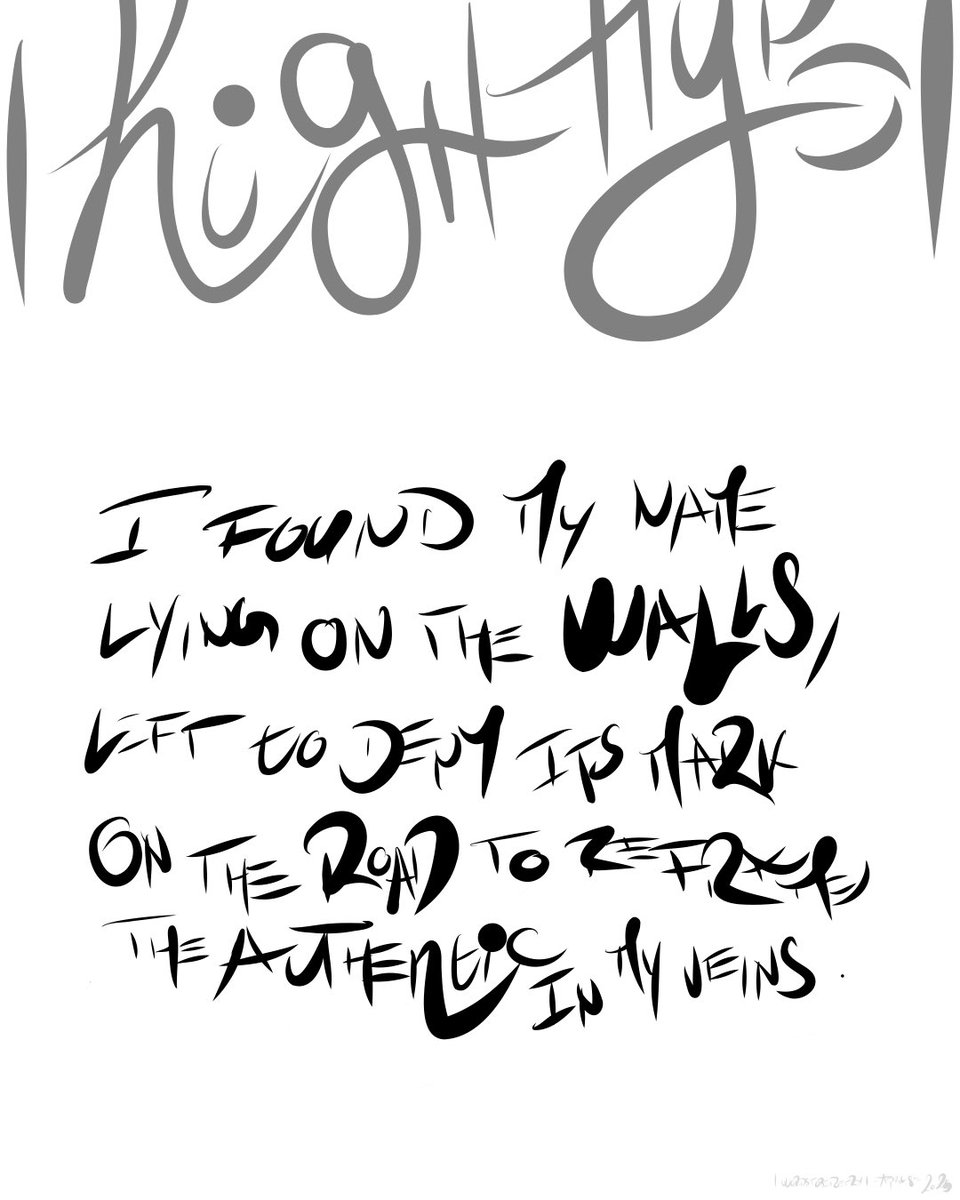 high
I FOUND MY NAME
LYING ON THE WALLS,
LEFT to DENY ITS MARK
ON THE ROAD TO REFRAME,
THE AUTHENtiC IN MY VEINS .